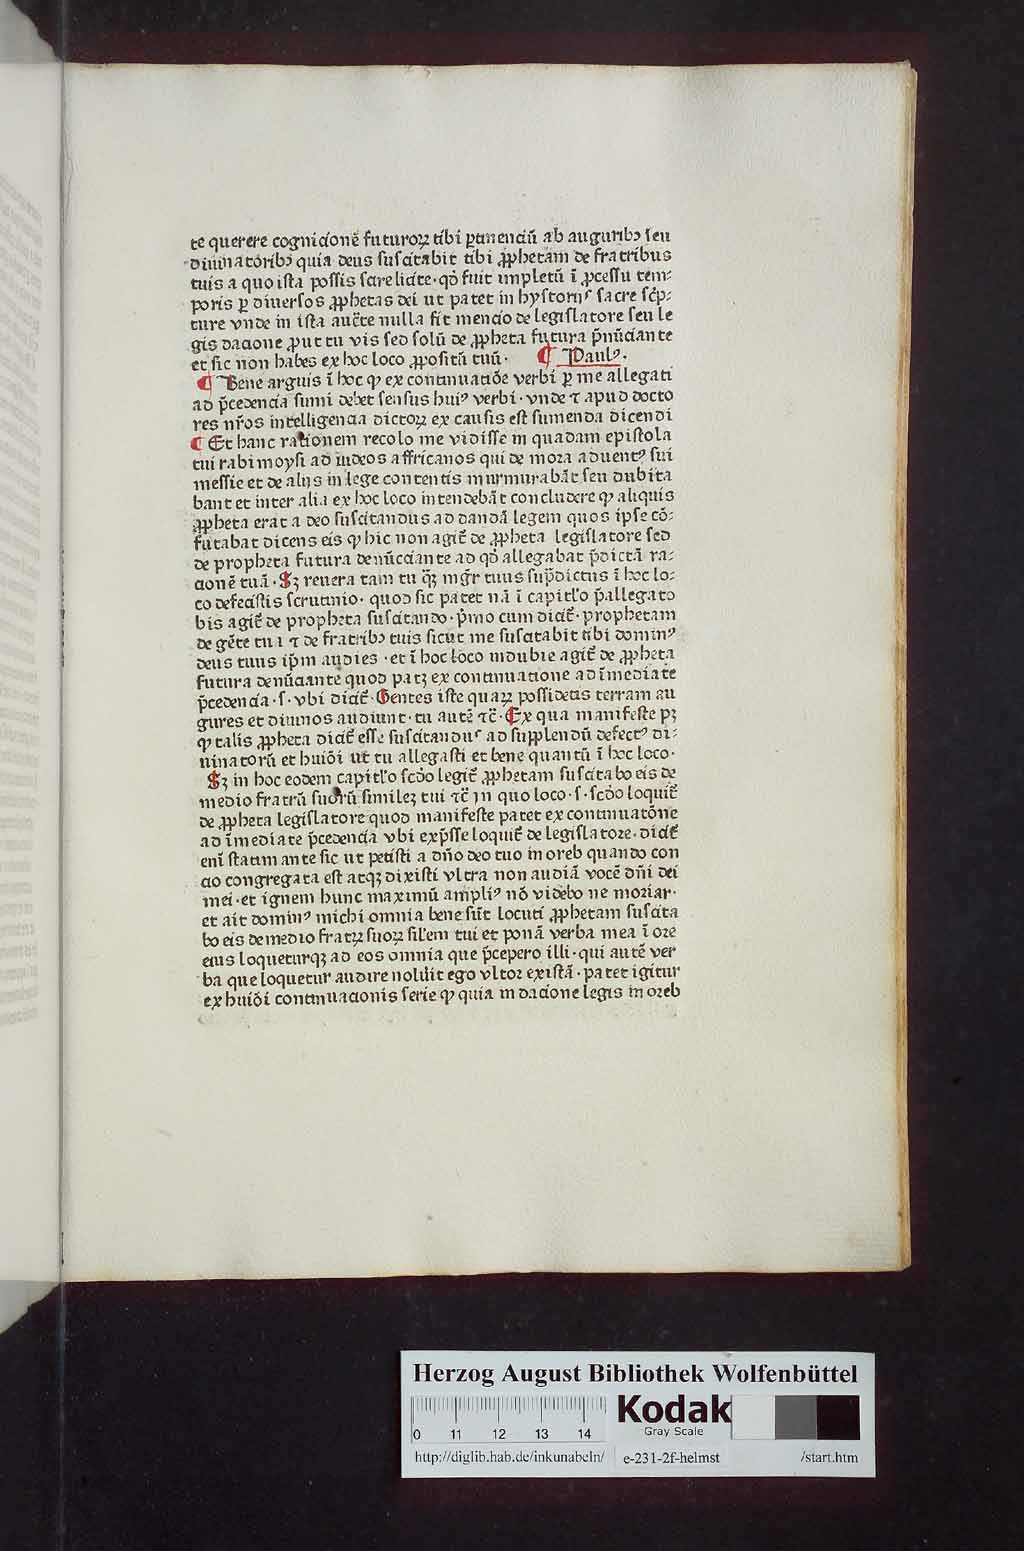 te querere cognicionē futuroꝝ tibi ꝑtinenciū ab auguribꝫ seu
diuinatoribꝫ quia deus suscitabit tibi ꝓphetam de fratribus
tuis a quo ista possis scire licite · qď fuit impletū ī ꝓcessu tem⸗
poris ꝑ diuersos ꝓphetas dei ut patet in hystorijs sacre sc̄p⸗
ture vnde in ista auc̄te nulla fit mencio de legislatore seu le
gis dacione ꝓut tu vis sed solū de ꝓpheta futura p̄nūciante
et sic non habes ex hoc loco ꝓpositū tuū · ¶ Paulꝰ ·
¶ Bene arguis ī hoc ꝙ ex continuatiōe verbi ꝑ me allegati
ad p̄cedencia sumi debet sensus huiꝰ verbi · vnde ⁊ apud docto
res nr̄os intelligencia dictoꝝ ex causis est sumenda dicendi
¶ Et hanc rationem recolo me vidisse in quadam epistola
tui rabi moysi ad iudeos affricanos qui de mora aduentꝰ sui
messie et de alijs in lege contentis murmurabāt seu dubita
bant et inter alia ex hoc loco intendebāt concludere ꝙ aliquis
ꝓpheta erat a deo suscitandus ad dandā legem quos ipse cō⸗
futabat dicens eis ꝙ hic non agit̄ de ꝓpheta legislatore sed
de propheta futura denūciante ad qď allegabat p̄dictā ra⸗
cionē tuā · Sꝫ reuera tam tu q̄ꝫ mgr̄ tuus sup̄dictus ī hoc lo⸗
co defecistis scrutinio · quod sic patet nā ī capitl'o p̄allegato
bis agit̄ de propheta suscitando · p̄mo cum dicit̄ · prophetam
de gēte tua ⁊ de fratribꝫ tuis sicut me suscitabit tibi dominꝰ
deus tuus ip̄m audies · et ī hoc loco indubie agit̄ de ꝓpheta
futura denūciante quod patꝫ ex continuatione ad īmediate
p̄cedencia · s · vbi dicit̄ · Gentes iste quaꝝ possidetis terram au
gures et diuinos audiunt · tu autē ⁊c̄ · Ex qua manifeste pꝫ
ꝙ talis ꝓpheta dicit̄ esse suscitandus ad supplendū defectꝰ di⸗
uinatorū et huiōi ut tu allegasti et bene quantū ī hoc loco ·
Sꝫ in hoc eodem capitl'o scd̄o legit̄ ꝓphetam suscitabo eis de
medio fratrū suorū similem tui ⁊c̄ in quo loco · s · scd̄o loquit̄
de ꝓpheta legislatore quod manifeste patet ex continuatōne
ad īmediate p̄cedencia vbi exp̄sse loquit̄ de legislatore · dicit̄
enī statim ante sic ut petisti a dn̄o deo tuo in oreb quando con
cio congregata est atqꝫ dixisti vltra non audiā vocē dn̄i dei
mei · et ignem hunc maximū ampliꝰ nō videbo ne moriar ·
et ait dominꝰ michi omnia bene sūt locuti ꝓphetam suscita
bo eis de medio fratꝝ suoꝝ sil'em tui et ponā verba mea ī ore
eius loqueturqꝫ ad eos omnia que p̄cepero illi · qui autē ver
ba que loquetur audire noluit ego vltor existā · patet igitur
ex huiōi continuacionis serie ꝙ quia in dacione legis in oreb
Herzog August Bibliothek Wolfenbüttel
0 11 12 13 14
Kodak
Gray Scale
http://diglib.hab.de/inkunabeln/ e-231-2f-helmst /start.htm